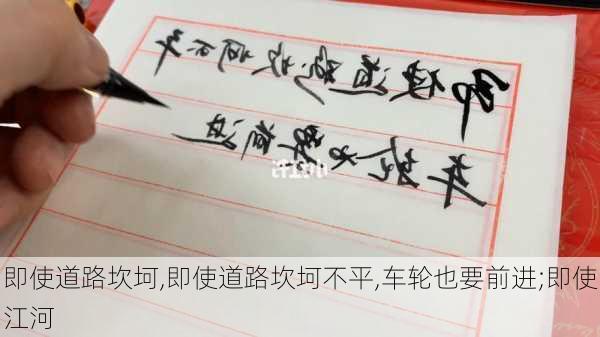 即使道路坎坷不平
车轮也要前进
即使道路坎坷,即使道路坎坷不平,车轮也要前进;即使
江河